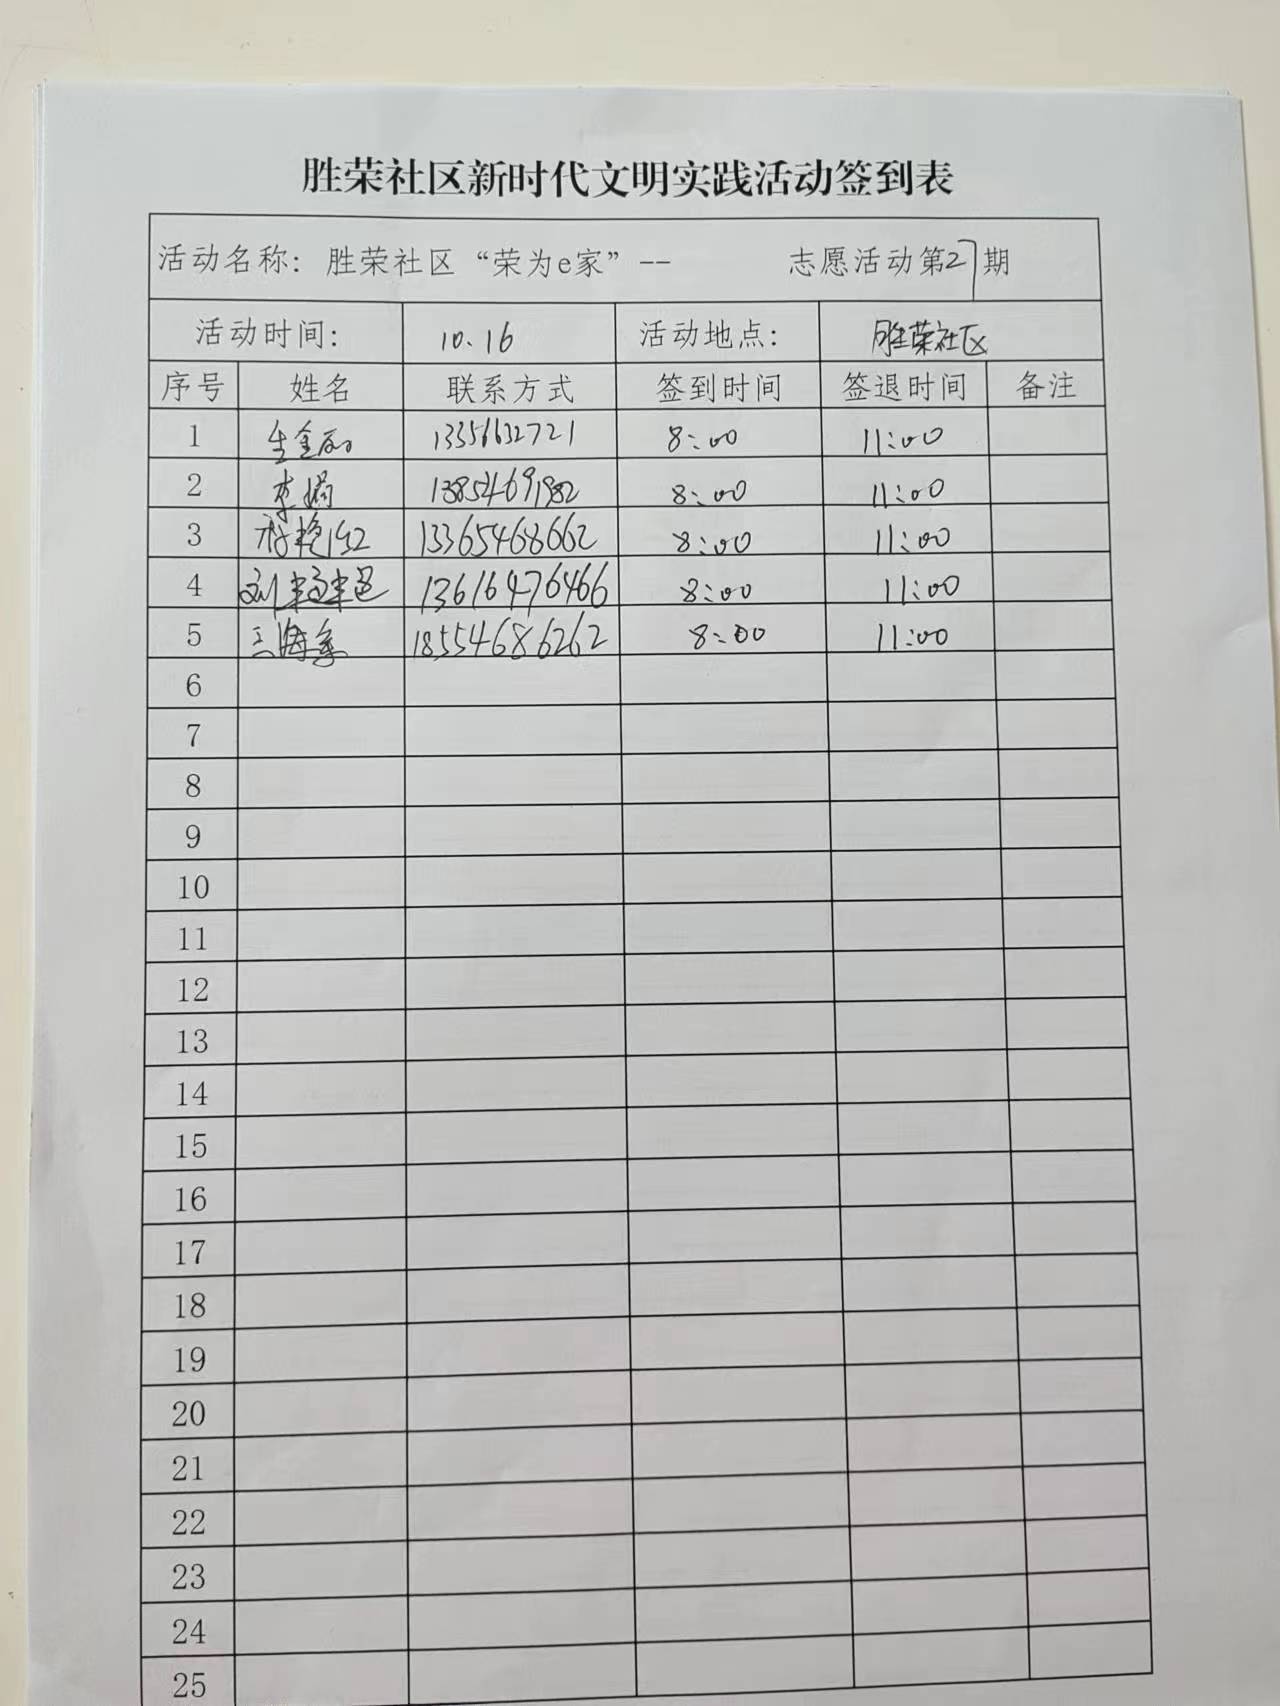 胜荣社区新时代文明实践活动签到表
活动名称: 胜荣社区“荣为e家”-- 志愿活动第27期
活动时间: 10.16 活动地点: 胜荣社区
序号 姓名 联系方式 签到时间 签退时间 备注
1 生金丽 13356632721 8:00 11:00
2 李娟 13854691982 8:00 11:00
3 艳红 13365468662 8:00 11:00
4 刘 13616476466 8:00 11:00
5 王海军 18554686262 8:00 11:00
6
7
8
9
10
11
12
13
14
15
16
17
18
19
20
21
22
23
24
25